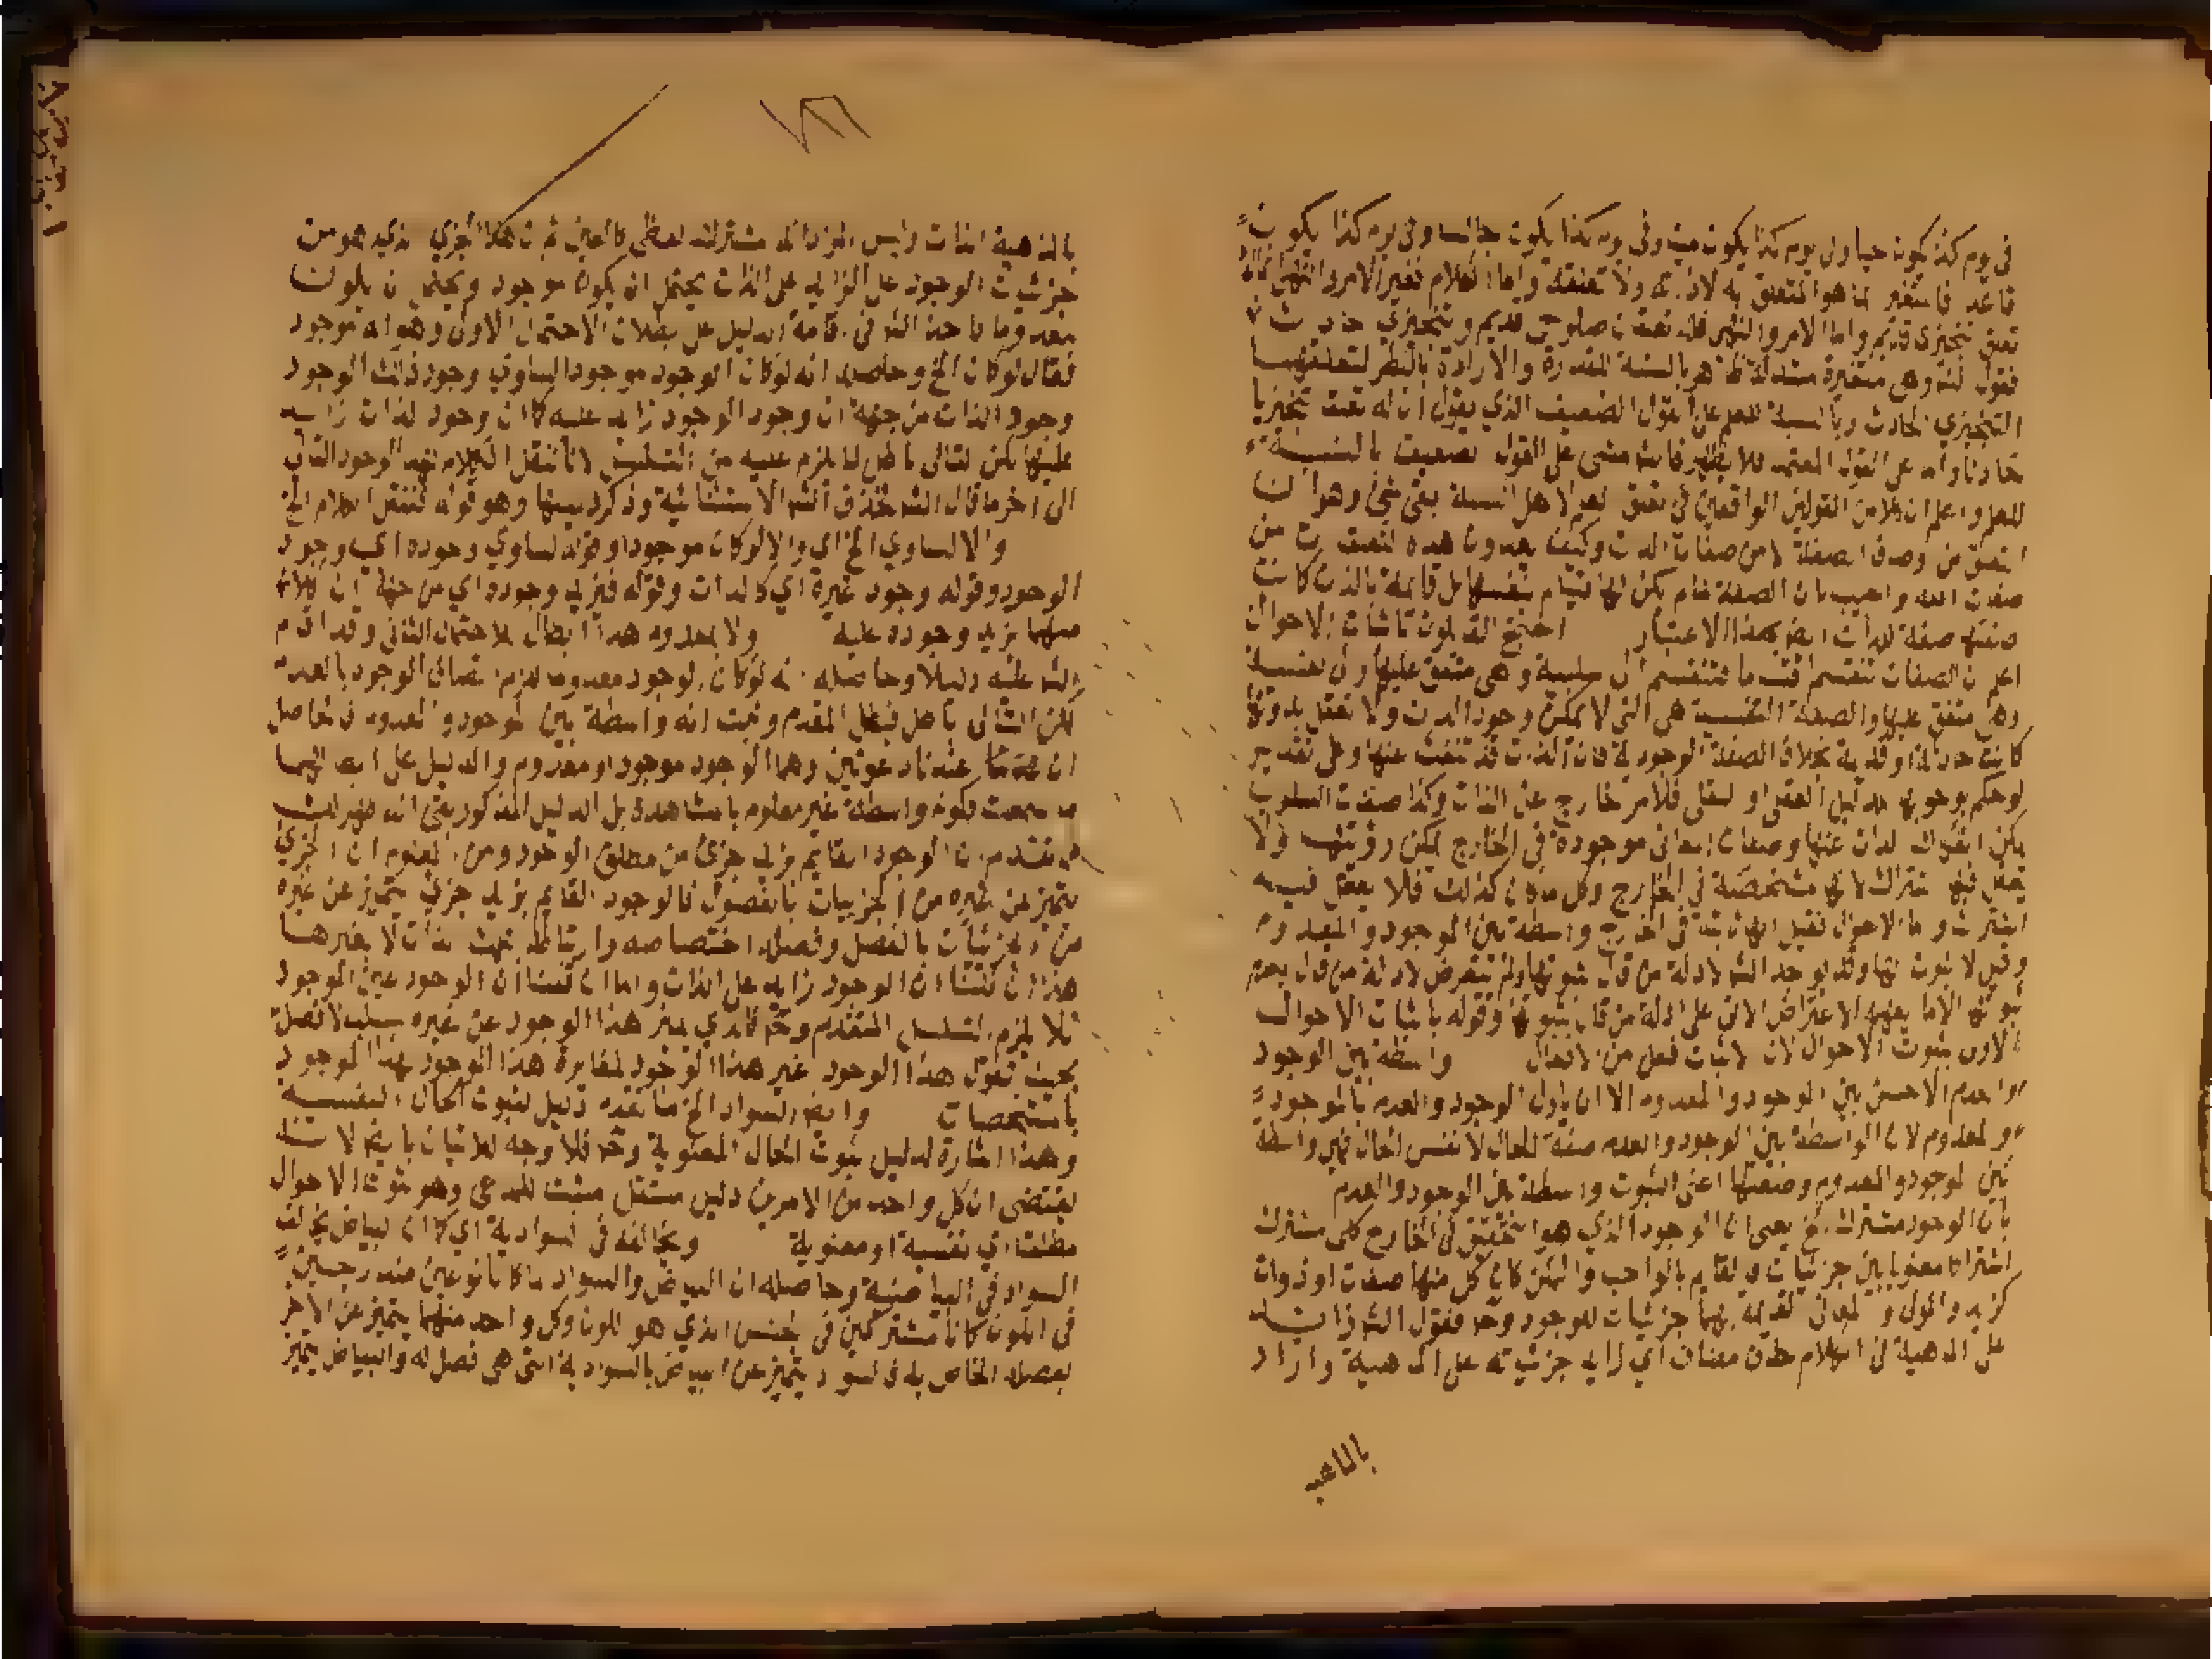 في يوم كذا يكون حيا وفي يوم كذا يكون ميتا وفي يوم كذا يكون جالسا وفي يوم كذا يكون
قاعد فالمتغير انما هو المتعلق به لا ذاته ولا تعلقه واما الكلام فغير الامر والنهي
تعلق تنجيزي قديم واما الامر والنهي فله تعلقان صلوحي قديم وتنجيزي حادث
فقول الش وهي متغيرة متبدلة ظاهر بالنسبة للقدرة والارادة بالنظر لتعلقهما
التنجيزي الحادث وبالنسبة للعلم على القول الضعيف الذي يقول ان له تعلقا تنجيزيا
حادثا واما على القول المعتمد فلا يظهر فالش مشى على القول الضعيف بالنسبة
للعلم واعلم ان كلا من القولين الواقعين في تعلق العلم لاهل السنة بقي شيء وهو ان
التعلق من وصف الصفة لا من صفات الذات وكيف يعدون هذه التعلقات من
صفات الله واجيب بان الصفة لما لم يكن لها قيام بنفسها بل قائمة بالذات كانت
صفتها صفة للذات ايضا بهذا الاعتبار احتج القائلون باثبات الاحوال
اعلم ان الصفات تنقسم اقساما فتنقسم الى سلبية وهي متفق عليها والى نفسية
وهي متفق عليها والصفة النفسية هي التي لا يمكن وجود الذات ولا تعقل بدونها
كانت حادثة او قديمة بخلاف الصفة الوجودية فان الذات قد تنفك عنها وعلى تقدير
لو حكم بوجوبها بدليل العقل او النقل فلامر خارج عن الذات وكذا صفات السلوب
يمكن انفكاك الذات عنها وصفات المعاني موجودة في الخارج يمكن رؤيتها ولا
يعقل فيها اشتراك لانها مشخصة في الخارج وكل ما كان كذلك فلا يعقل فيه
اشتراك واما الاحوال فقيل انها ثابتة في الخارج واسطة بين الموجود والمعدوم
وقيل لا ثبوت لها وقد يوجد الش لادلة من قال بثبوتها ولم يتعرض لادلة من قال بعدم
ثبوتها الا ما يفهمه الاعتراض الاتي على ادلة من قال بثبوتها وقوله باثبات الاحوال
الاولى بثبوت الاحوال لان الاثبات فعل من الافعال واسطة بين الوجود
والعدم الاحسن بين الموجود والمعدوم الا ان يأول الوجود والعدم بالموجود
والمعدوم لان الواسطة بين الوجود والعدم صفة للحال لا نفس الحال فهي واسطة
بين الموجود والمعدوم وصفتها اعني الثبوت واسطة بين الوجود والعدم
بان الوجود مشترك الخ يعني ان الوجود الذي هو التحقق في الخارج كلي مشترك
اشتراكا معنويا بين جزئياته القايم بالواجب والممكن كان كل منها صفات او ذوات
كزيد والمولى والمعاني القديمة بهما جزئيات للوجود وح فقول الش زائد
على الماهية في الكلام حذف مضاف اي زايد جزئياته على الماهية واراد
بالماهية
بالماهية الذات وليس المراد انه مشترك لفظي كالعين ثم ان هذا الجزي الذي هو من
جزئيات الوجود على الزايد على الذات يحتمل ان يكون موجود ويحتمل ان يكون
معدوما فاخذ الش في اقامة الدليل على بطلان الاحتمال الاول وهو انه موجود
فقال لو كان الخ وحاصله انه لو كان الوجود موجود الساوى وجود ذلك الوجود
وجود الذات من جهة ان وجود الوجود زايد عليه كما ان وجود الذات زايد
عليها لكن التالي باطل لما يلزم عليه من التسلسل لانا ننقل الكلام لهذا الوجود الثاني
الى اخر ما قال الش فحذف الش الاستثنائية وذكر دليلها وهو قوله فننقل الكلام الخ
والا لساوى الخ اي والا لو كان موجودا وقوله لساوى وجوده اي وجود
الوجود وقوله وجود غيره اي كالذات وقوله فيزيد وجوده اي من جهة ان كلا
منهما يزيد وجوده عليه ولا معدوم هذا ابطال للاحتمال الثاني وقد اقام
الش عليه دليلا وحاصله انه لو كان الوجود معدوما للزم اتصاف الوجود بالعدم
لكن التالي باطل فبطل المقدم وثبت انه واسطة بين الموجود والمعدوم فالحاصل
ان عندنا دعوتين وهما الوجود موجود او معدوم والدليل على ابطالهما
ما سمعت فكونه واسطة غير معلوم بالمشاهدة بل الدليل المذكور يعني انه ظهر لك
مما تقدم ان الوجود القايم بزيد جزئ من مطلق الوجود ومن المعلوم ان الجزي
يتميز عن غيره من الجزئيات بالفصول فالوجود القايم بزيد جزئ يتميز عن غيره
من الجزئيات بالفصل وفصله اختصاصه وارتباطه بهذه الذات لا بغيرها
هذا ان قلنا ان الوجود زايد على الذات واما ان قلنا ان الوجود عين الموجود
فلا يلزم التسلسل المتقدم وح فالذي يميز هذا الوجود عن غيره سلب لا فصل
بحيث نقول هذا الوجود غير هذا الوجود لمغايرة هذا الموجود لهذا الموجود
بالمشخصات وايضا السواد الخ ما تقدم دليل لثبوت الحال النفسية
وهذا اشارة لدليل ثبوت الحال المعنوية وح فلا وجه للاتيان بايضا لانه
يقتضي ان كل واحد من الامرين دليل مستقل مثبت للمدعى وهو ثبوت الاحوال
مطلقا اي نفسية او معنوية ويخالفه في السوادية اي كما ان البياض يخالف
السواد في البياضية وحاصله ان البياض والسواد لما كانا نوعين مندرجين
في اللون كانا مشتركين في الجنس الذي هو اللون وكل واحد منهما يتميز عن الاخر
بفصله الخاص به فالسواد يتميز عن البياض بالسوادية التي هي فصل له والبياض يتميز